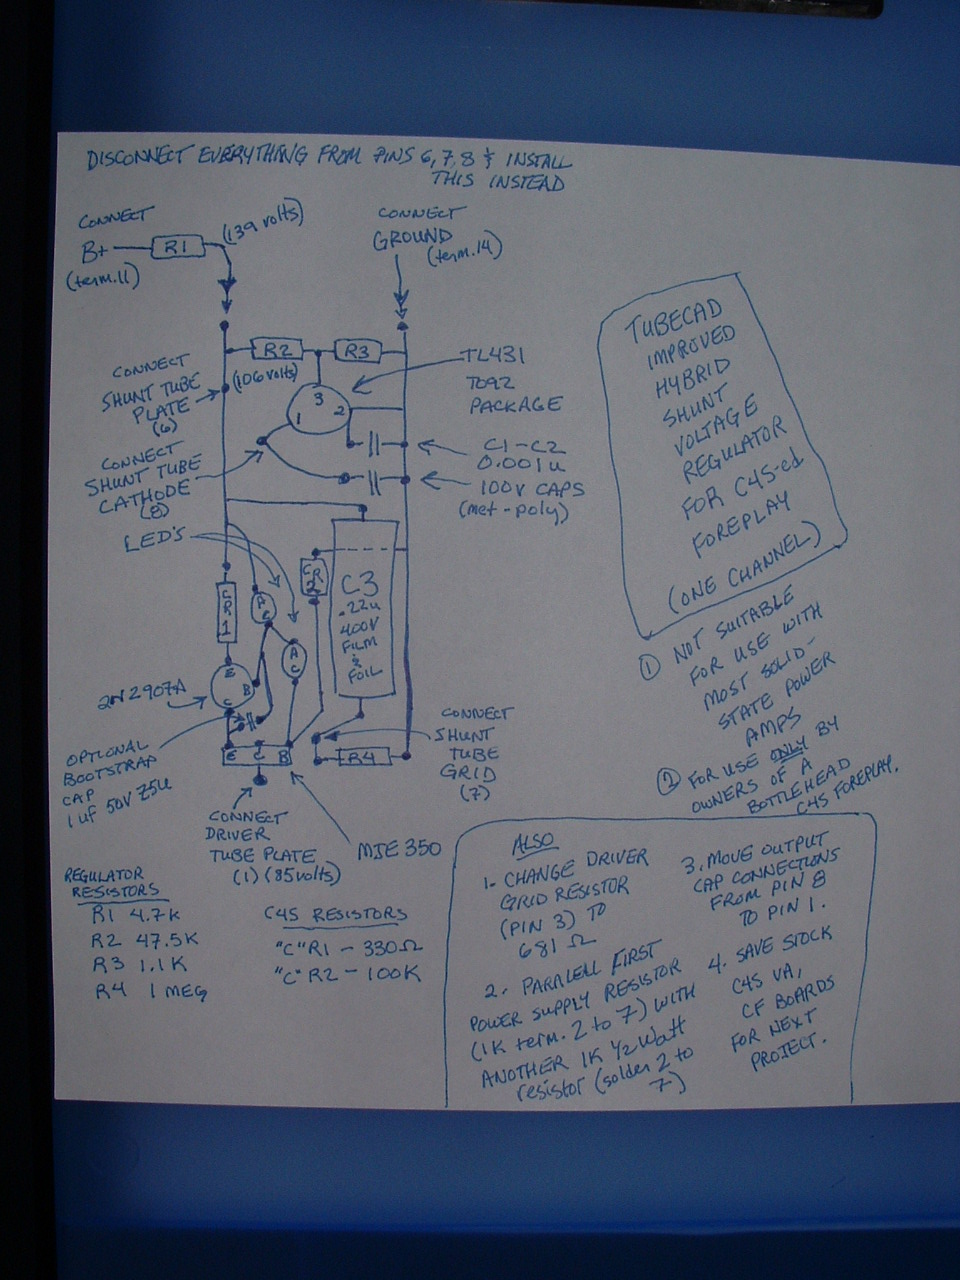 DISCONNECT EVERYTHING FROM PINS 6, 7, 8 & INSTALL
THIS INSTEAD
CONNECT
B+
(term. 11)
R1
(139 volts)
CONNECT
GROUND
(term. 14)
R2
R3
(106 volts)
CONNECT
SHUNT TUBE
PLATE
(6)
3
1
2
TL431
TO92
PACKAGE
CONNECT
SHUNT TUBE
CATHODE
(8)
C1-C2
0.001u
100V CAPS
(met-poly)
LED'S
CR1
A
C
A
C
CR2
C3
.22u
400V
FILM
&
FOIL
E
B
C
2N2907A
OPTIONAL
BOOTSTRAP
CAP
1uf 50V Z5U
E C B
R4
CONNECT
SHUNT
TUBE
GRID
(7)
CONNECT
DRIVER
TUBE PLATE
(1) (85 volts)
MJE350
REGULATOR
RESISTORS
R1 4.7K
R2 47.5K
R3 1.1K
R4 1 MEG
C4S RESISTORS
"C"R1 - 330Ω
"C"R2 - 100K
TUBECAD
IMPROVED
HYBRID
SHUNT
VOLTAGE
REGULATOR
FOR C4S-ed
FOREPLAY
(ONE CHANNEL)
① NOT SUITABLE
FOR USE WITH
MOST SOLID-
STATE POWER
AMPS
② FOR USE ONLY BY
OWNERS OF A
BOTTLEHEAD
C4S FOREPLAY.
ALSO
1- CHANGE DRIVER
GRID RESISTOR
(PIN 3) TO
681 Ω
2. PARALELL FIRST
POWER SUPPLY RESISTOR
(1K term. 2 to 7) WITH
ANOTHER 1K 1/2 Watt
resistor (solder 2 to
7)
3. MOVE OUTPUT
CAP CONNECTIONS
FROM PIN 8
TO PIN 1.
4. SAVE STOCK
C4S VA,
CF BOARDS
FOR NEXT
PROJECT.